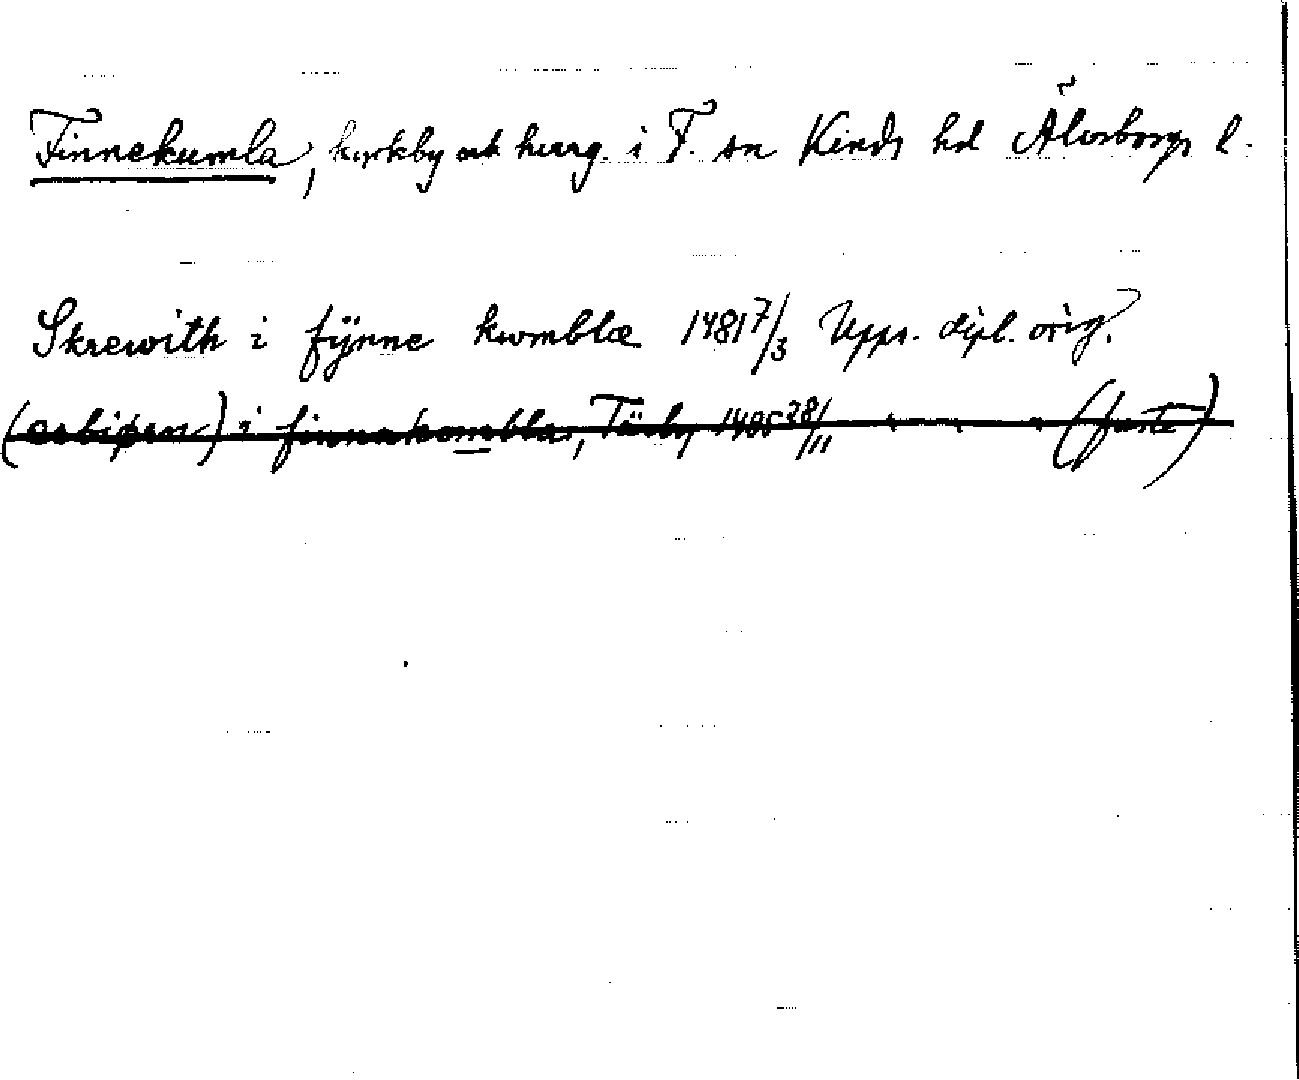 Finnekumla, kyrkby och herrg. i F. sn Kinds hd Älvsborgs l.
Skrewith i fÿnne kwmblæ 1481 7/3 Upps. dipl. orig.
i finnakomblas, Täsby 1485 28/11 (faste)